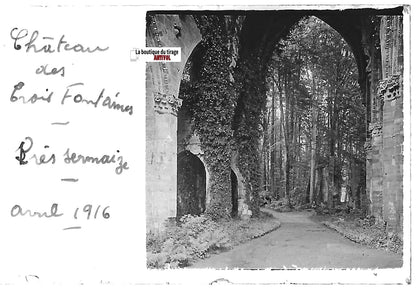 Château
des
Trois Fontaines
Près Sermaize
avril 1916
La boutique du tirage
ARTIFOL